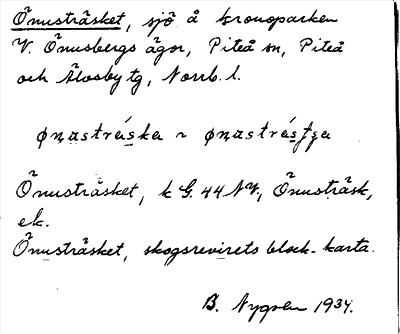 Önusträsket, sjö å kronoparken
V. Önusbergs ägor, Piteå sn, Piteå
och Älvsby tg, Norrb. l.
ønastráska ~ ønastrásʃa
Önusträsket, k G. 44 NV, Önusträsk,
ek.
Önusträsket, skogsrevirets block-karta.
B. Nygren 1934.